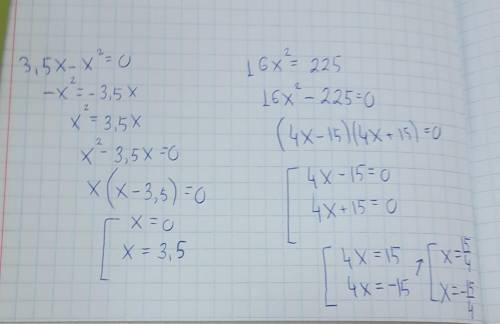 3,5x - x² = 0
-x² = -3,5x
x² = 3,5x
x² - 3,5x = 0
x(x - 3,5) = 0
[ x = 0
x = 3,5
16x² = 225
16x² - 225 = 0
(4x - 15)(4x + 15) = 0
[ 4x - 15 = 0
4x + 15 = 0
[ 4x = 15 ↗ [ x = 15/4
4x = -15 x = -15/4